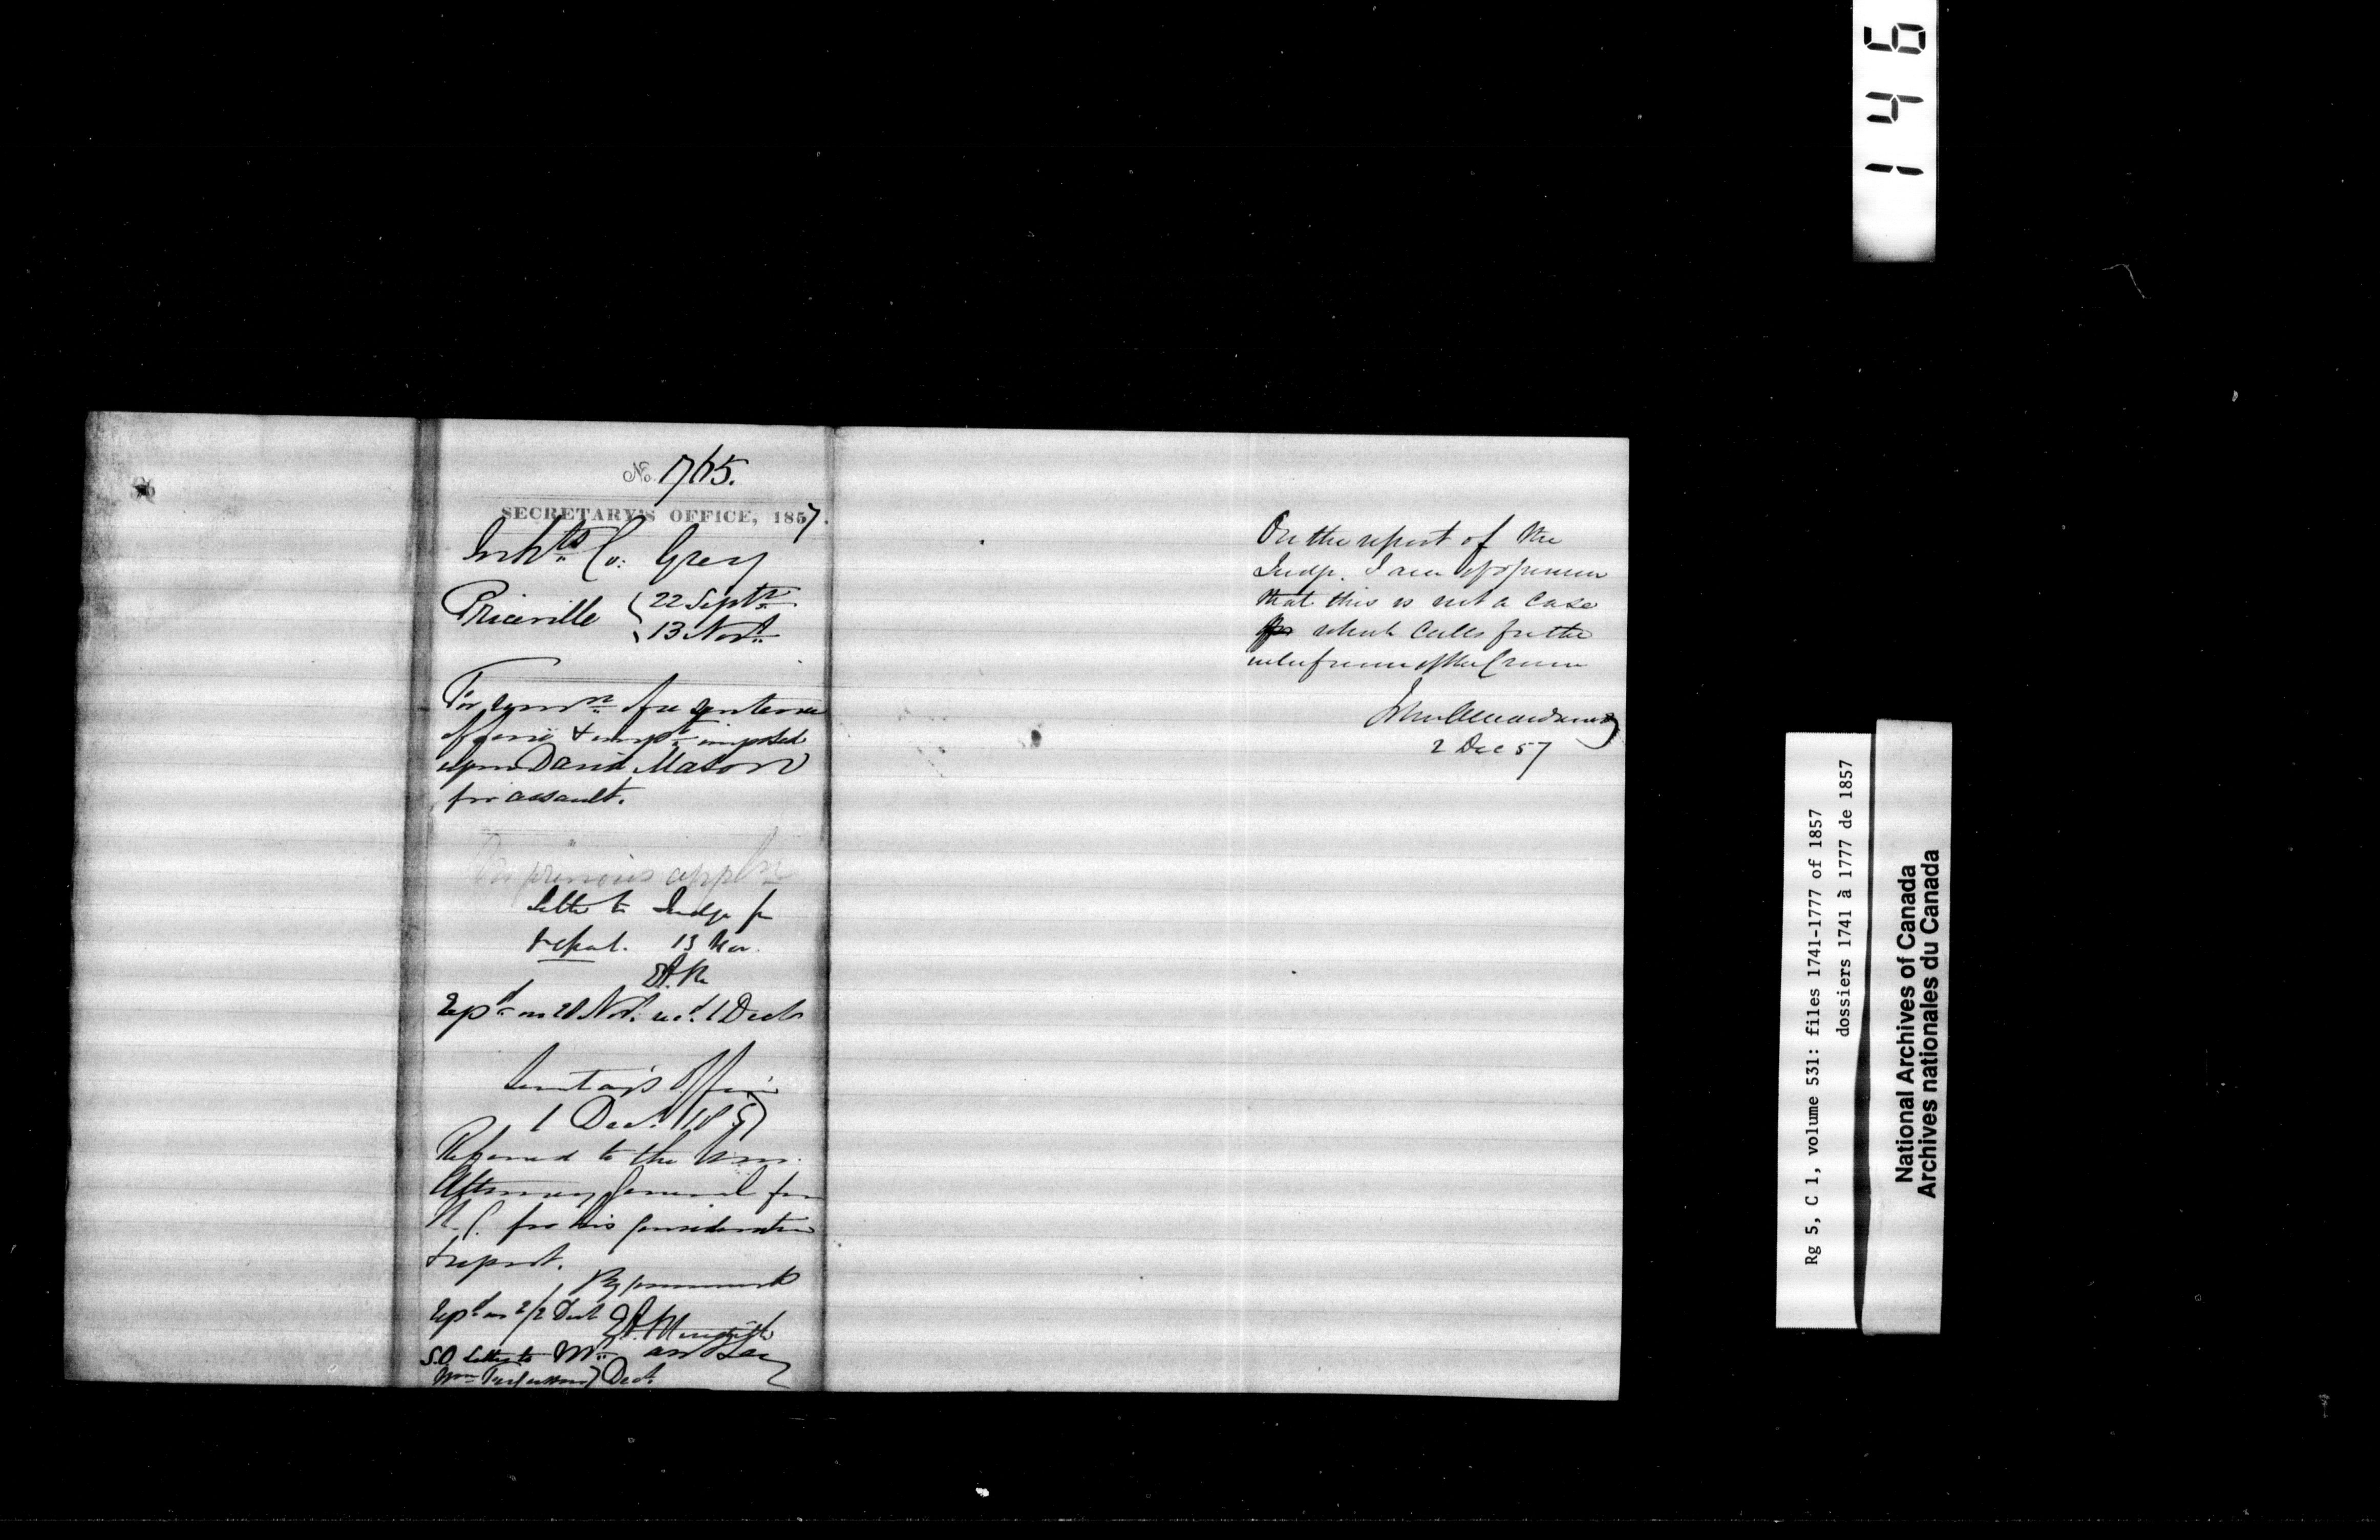 No. 1765.
SECRETARY'S OFFICE, 1857.
Inhts Co: Grey
Priceville { 22 Septr
13 Novr
For remn of a sentence
of fine & impt imposed
upon David Mason
for assault.
No previous appln
Letter to Judge for
report. 13 Nov.
E.A.M.
Repd on 28 Nov. recd 1 Decr
Secretary's Office
1 Dec. 1857
Referred to the Hon.
Attorney General for
U.C. for his consideration
& report.
By command
Repd on 2/2 Decr E.A. Meredith
S.O. Letter to Mr Asst Secy
Wm 7 Decr
On the report of the
Judge. I am of opinion
that this is not a case
which calls for the
interference of the Crown
John A Macdonald
2 Dec 57
146
Rg 5, C 1, volume 531: files 1741-1777 of 1857
dossiers 1741 à 1777 de 1857
National Archives of Canada
Archives nationales du Canada